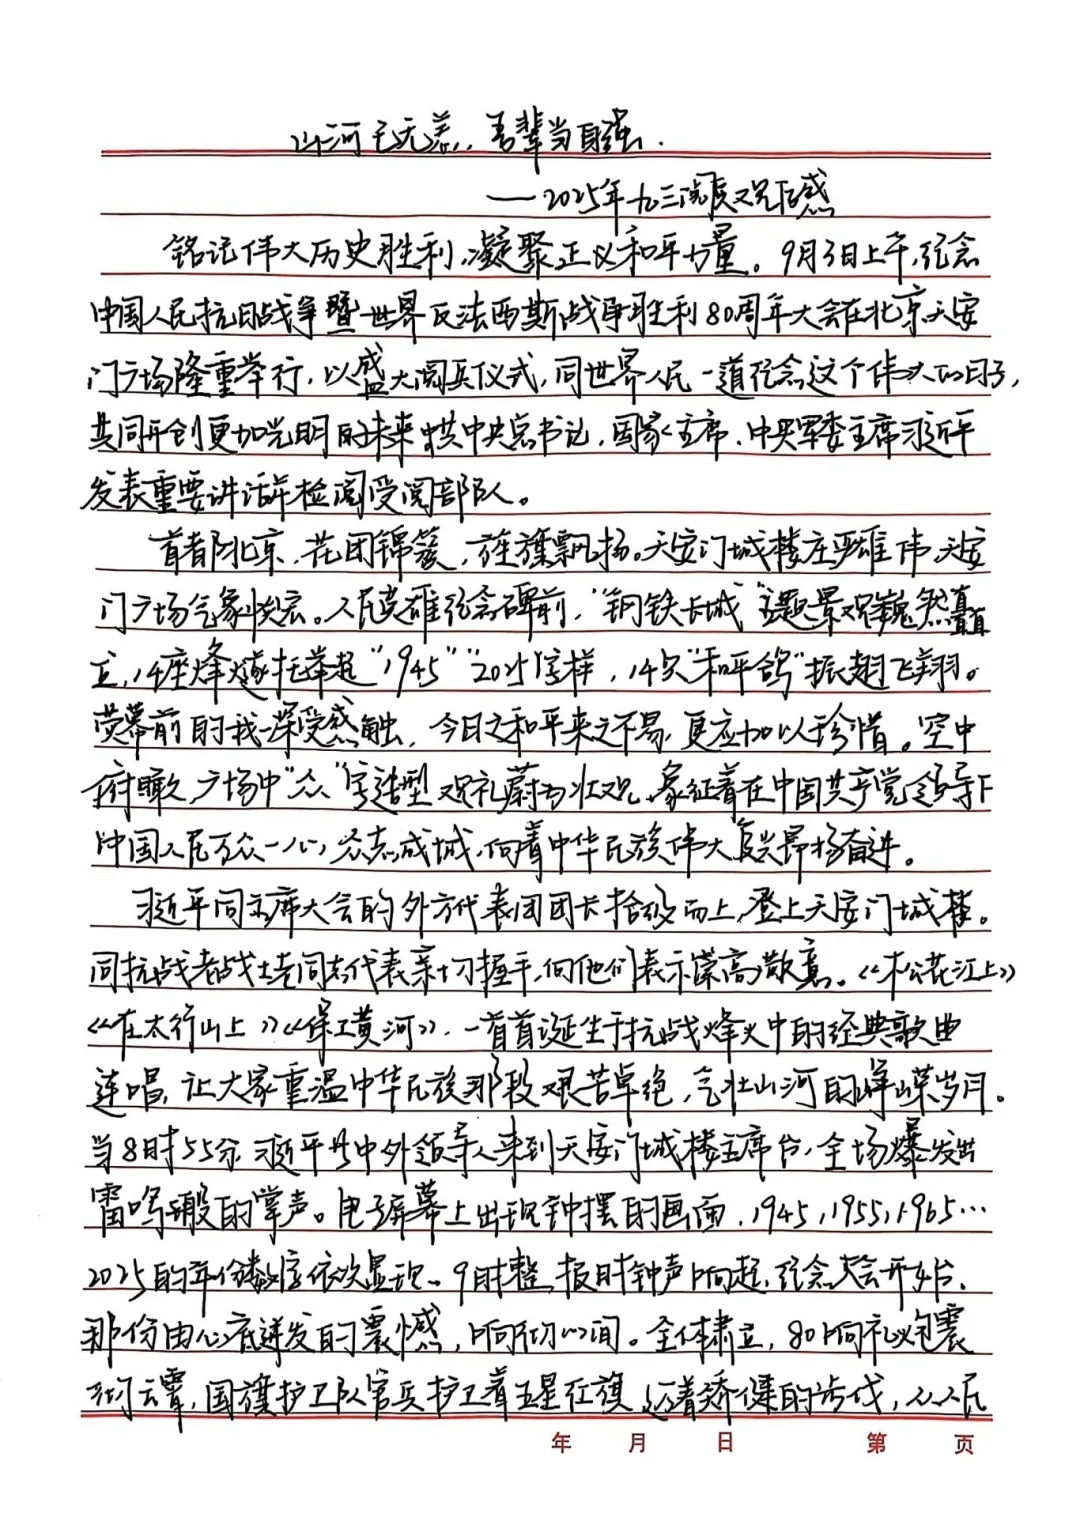 山河已无恙，吾辈当自强.
——2025年九三阅兵观后感
铭记伟大历史胜利,凝聚正义和平力量。9月3日上午,纪念
中国人民抗日战争暨世界反法西斯战争胜利80周年大会在北京天安
门广场隆重举行,以盛大阅兵仪式,同世界人民一道纪念这个伟大的日子,
共同开创更加光明的未来.中共中央总书记,国家主席.中央军委主席习近平
发表重要讲话并检阅受阅部队。
首都北京,花团锦簇,旌旗飘扬。天安门城楼庄严雄伟,天安
门广场气象恢宏。人民英雄纪念碑前,"钢铁长城"主题景观巍然矗
立,14座烽燧托举起"1945""2025"字样,14只"和平鸽"振翅飞翔。
荧幕前的我深受感触,今日之和平来之不易,更应加以珍惜。空中
俯瞰,广场中"众"字造型观礼蔚为壮观,象征着在中国共产党领导下
中国人民万众一心,众志成城,向着中华民族伟大复兴昂扬奋进。
习近平同出席大会的外方代表团团长拾级而上,登上天安门城楼。
同抗战老战士老同志代表亲切握手,向他们表示崇高敬意。《松花江上》
《在太行山上》《保卫黄河》,一首首诞生于抗战烽火中的经典歌曲
连唱,让大家重温中华民族那段艰苦卓绝,气壮山河的峥嵘岁月。
当8时55分 习近平与中外领导人来到天安门城楼主席台,全场爆发出
雷鸣般的掌声。电子屏幕上出现钟摆的画面,1945,1955,1965…
2025的年份数字依次显现。9时整,报时钟声响起,纪念大会开始.
那份由心底迸发的震憾,响彻心间。全体肃立,80响礼炮震
彻云霄,国旗护卫队官兵护卫着五星红旗,迈着矫健的步伐,从人民
年 月 日 第 页